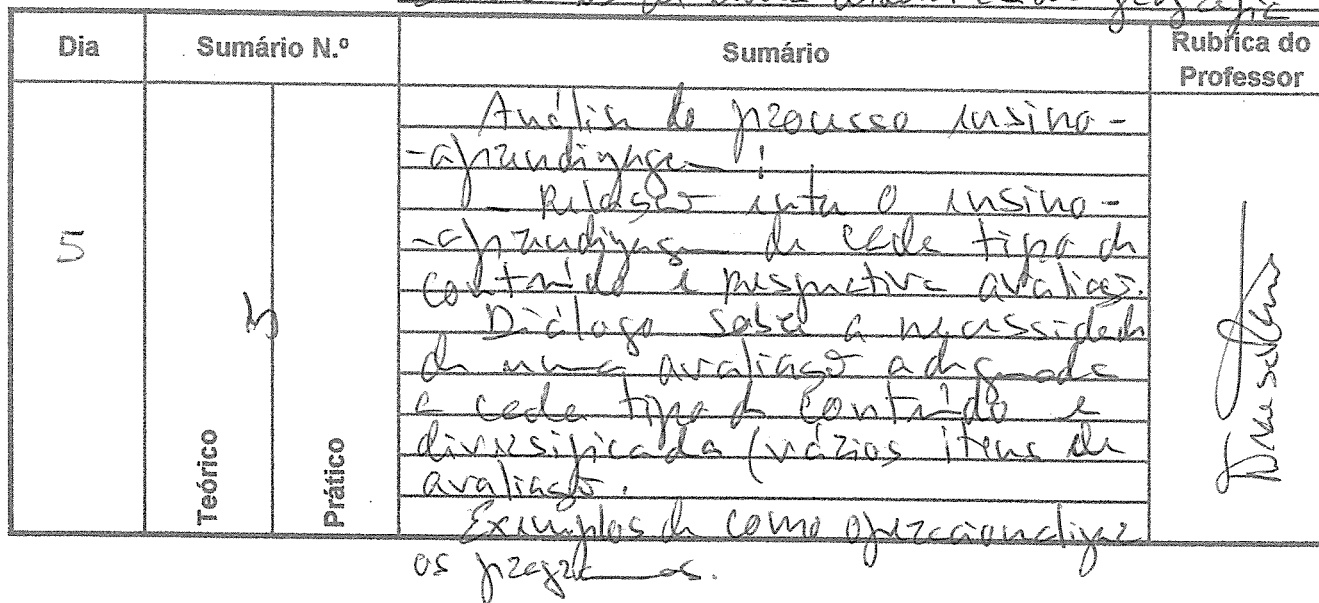 Dia
Sumário N.º
Sumário
Rubrica do
Professor
5
Teórico
Prático
Análise do processo ensino-
-aprendizagem:
- Relação entre o ensino-
-aprendizagem de cada tipo de
conteúdo e respectiva avaliação.
Diálogo sobre a necessidade
de uma avaliação adequada
a cada tipo de conteúdo e
diversificada (vários itens de
avaliação.
Exemplos de como operacionalizar
os programas.